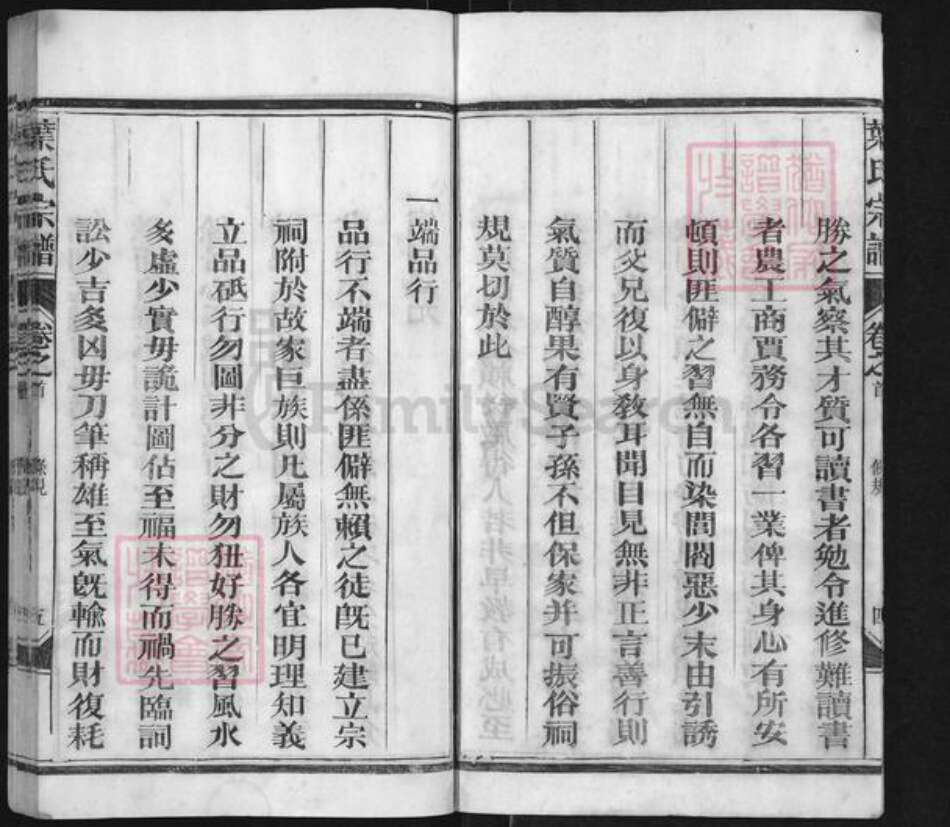 葉氏宗譜 卷之首 條規 四
勝之氣察其才質可讀書者勉令進修難讀書
者農工商賈務令各習一業俾其身心有所安
頓則匪僻之習無自而染閭閻惡少末由引誘
而父兄復以身敎耳聞目見無非正言善行則
氣質自醇果有賢子孫不但保家并可振俗祠
規莫切於此
一端品行
品行不端者盡係匪僻無賴之徒旣已建立宗
祠附於故家巨族則凡屬族人各宜明理知義
立品砥行勿圖非分之財勿狃好勝之習風水
多虛少實毋詭計圖佔至福未得而禍先臨詞
訟少吉多凶毋刀筆稱雄至氣旣輸而財復耗
葉氏宗譜 卷之首 條規 五
FamilySearch